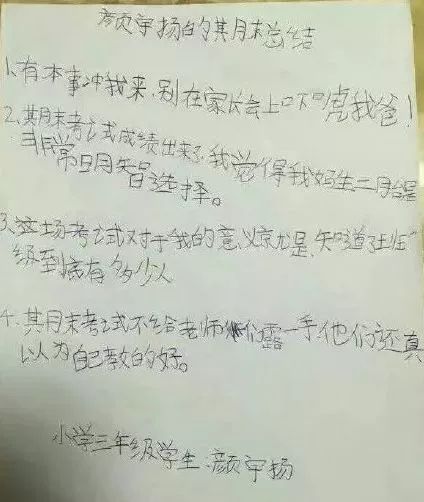 颜宇扬的其月末总结
1.有本事冲我来,别在家长会上口下口虎我爸!
2.其月末考试成绩出来了,我觉得我妈生二月台是
非常日月智的选择。
3.这场考试对于我的意义京尤是,知道了班
级到底有多少人
4.其月末考试不给老师们露一手,他们还真
以为自己教的好。
小学三年级学生:颜宇扬